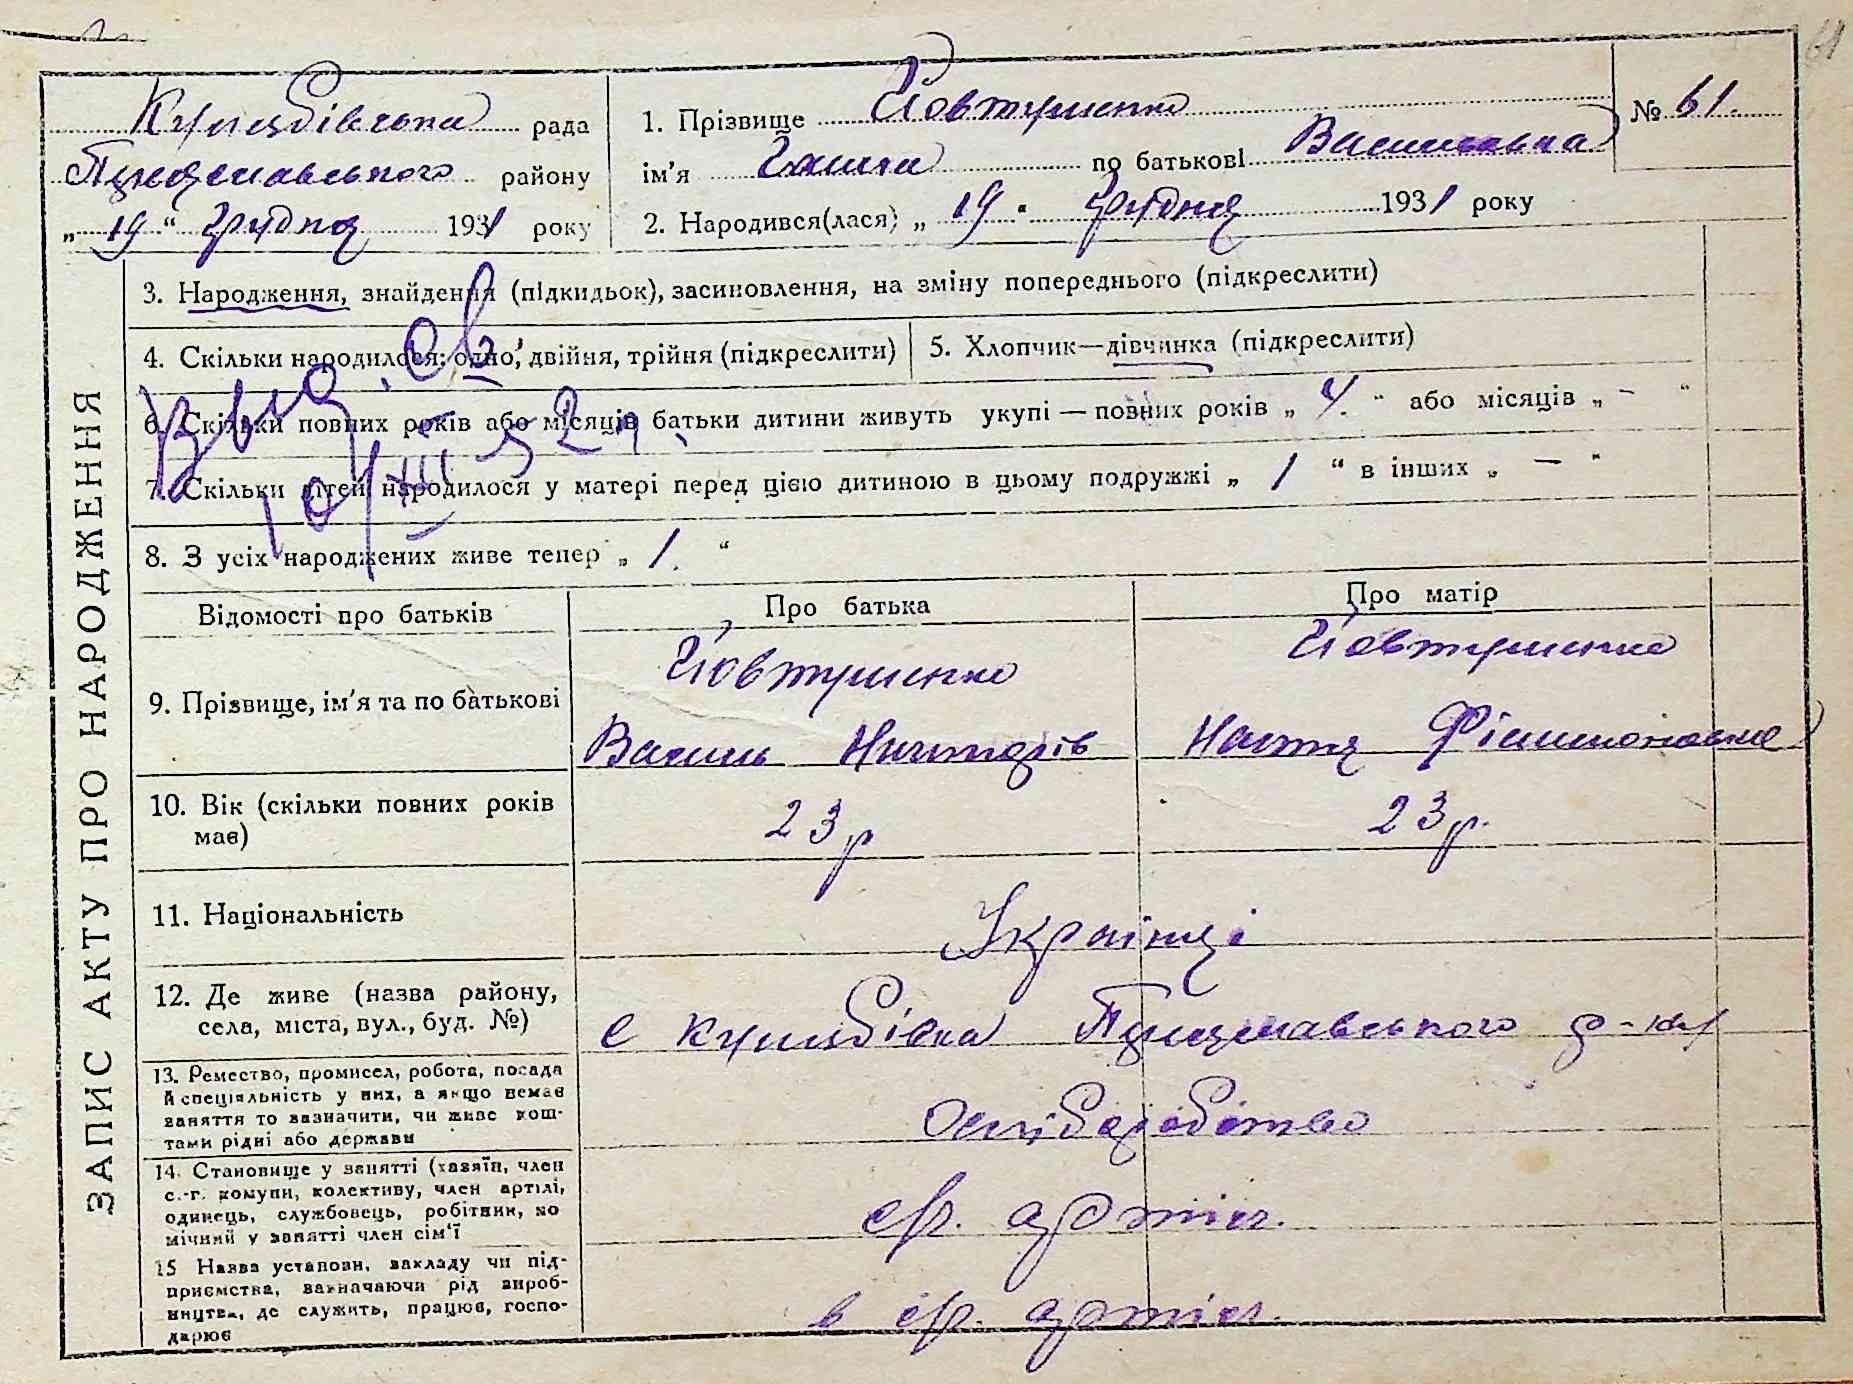 61
рада
району
„ 19 “ грудня 1931 року
1. Прізвище Йовтушенко
ім'я Галина по батькові Васильовна
№ 61.
2. Народився(лася) „ 19 “ грудня 1931 року
ЗАПИС АКТУ ПРО НАРОДЖЕННЯ
3. Народження, знайдення (підкидьок), засиновлення, на зміну попереднього (підкреслити)
4. Скільки народилося: одно, двійня, трійня (підкреслити)
5. Хлопчик—дівчинка (підкреслити)
6. Скільки повних років або місяців батьки дитини живуть укупі — повних років „ 4. “ або місяців „ – “
7. Скільки дітей народилося у матері перед цією дитиною в цьому подружжі „ 1 “ в інших „ — “
8. З усіх народжених живе тепер „ 1. “
Выд. св
10/XII 52 г.
Відомості про батьків
Про батька
Про матір
9. Прізвище, ім'я та по батькові
Йовтушенко
Василь
Йовтушенко
Настя
10. Вік (скільки повних років
має)
23 р
23 р.
11. Національність
Українці
12. Де живе (назва району,
села, міста, вул., буд. №)
с
13. Ремество, промисел, робота, посада
й спеціяльність у них, а якщо немає
заняття то зазначити, чи живе кош-
тами рідні або держави
14. Становище у занятті (хазяїн, член
с.-г. комуни, колективу, член артілі,
одинець, службовець, робітник, по
мічний у занятті член сім'ї
артіл.
15 Назва установи, закладу чи під-
приємства, зазначаючи рід вироб-
ництва, де служить, працює, госпо-
дарює
в артіл.